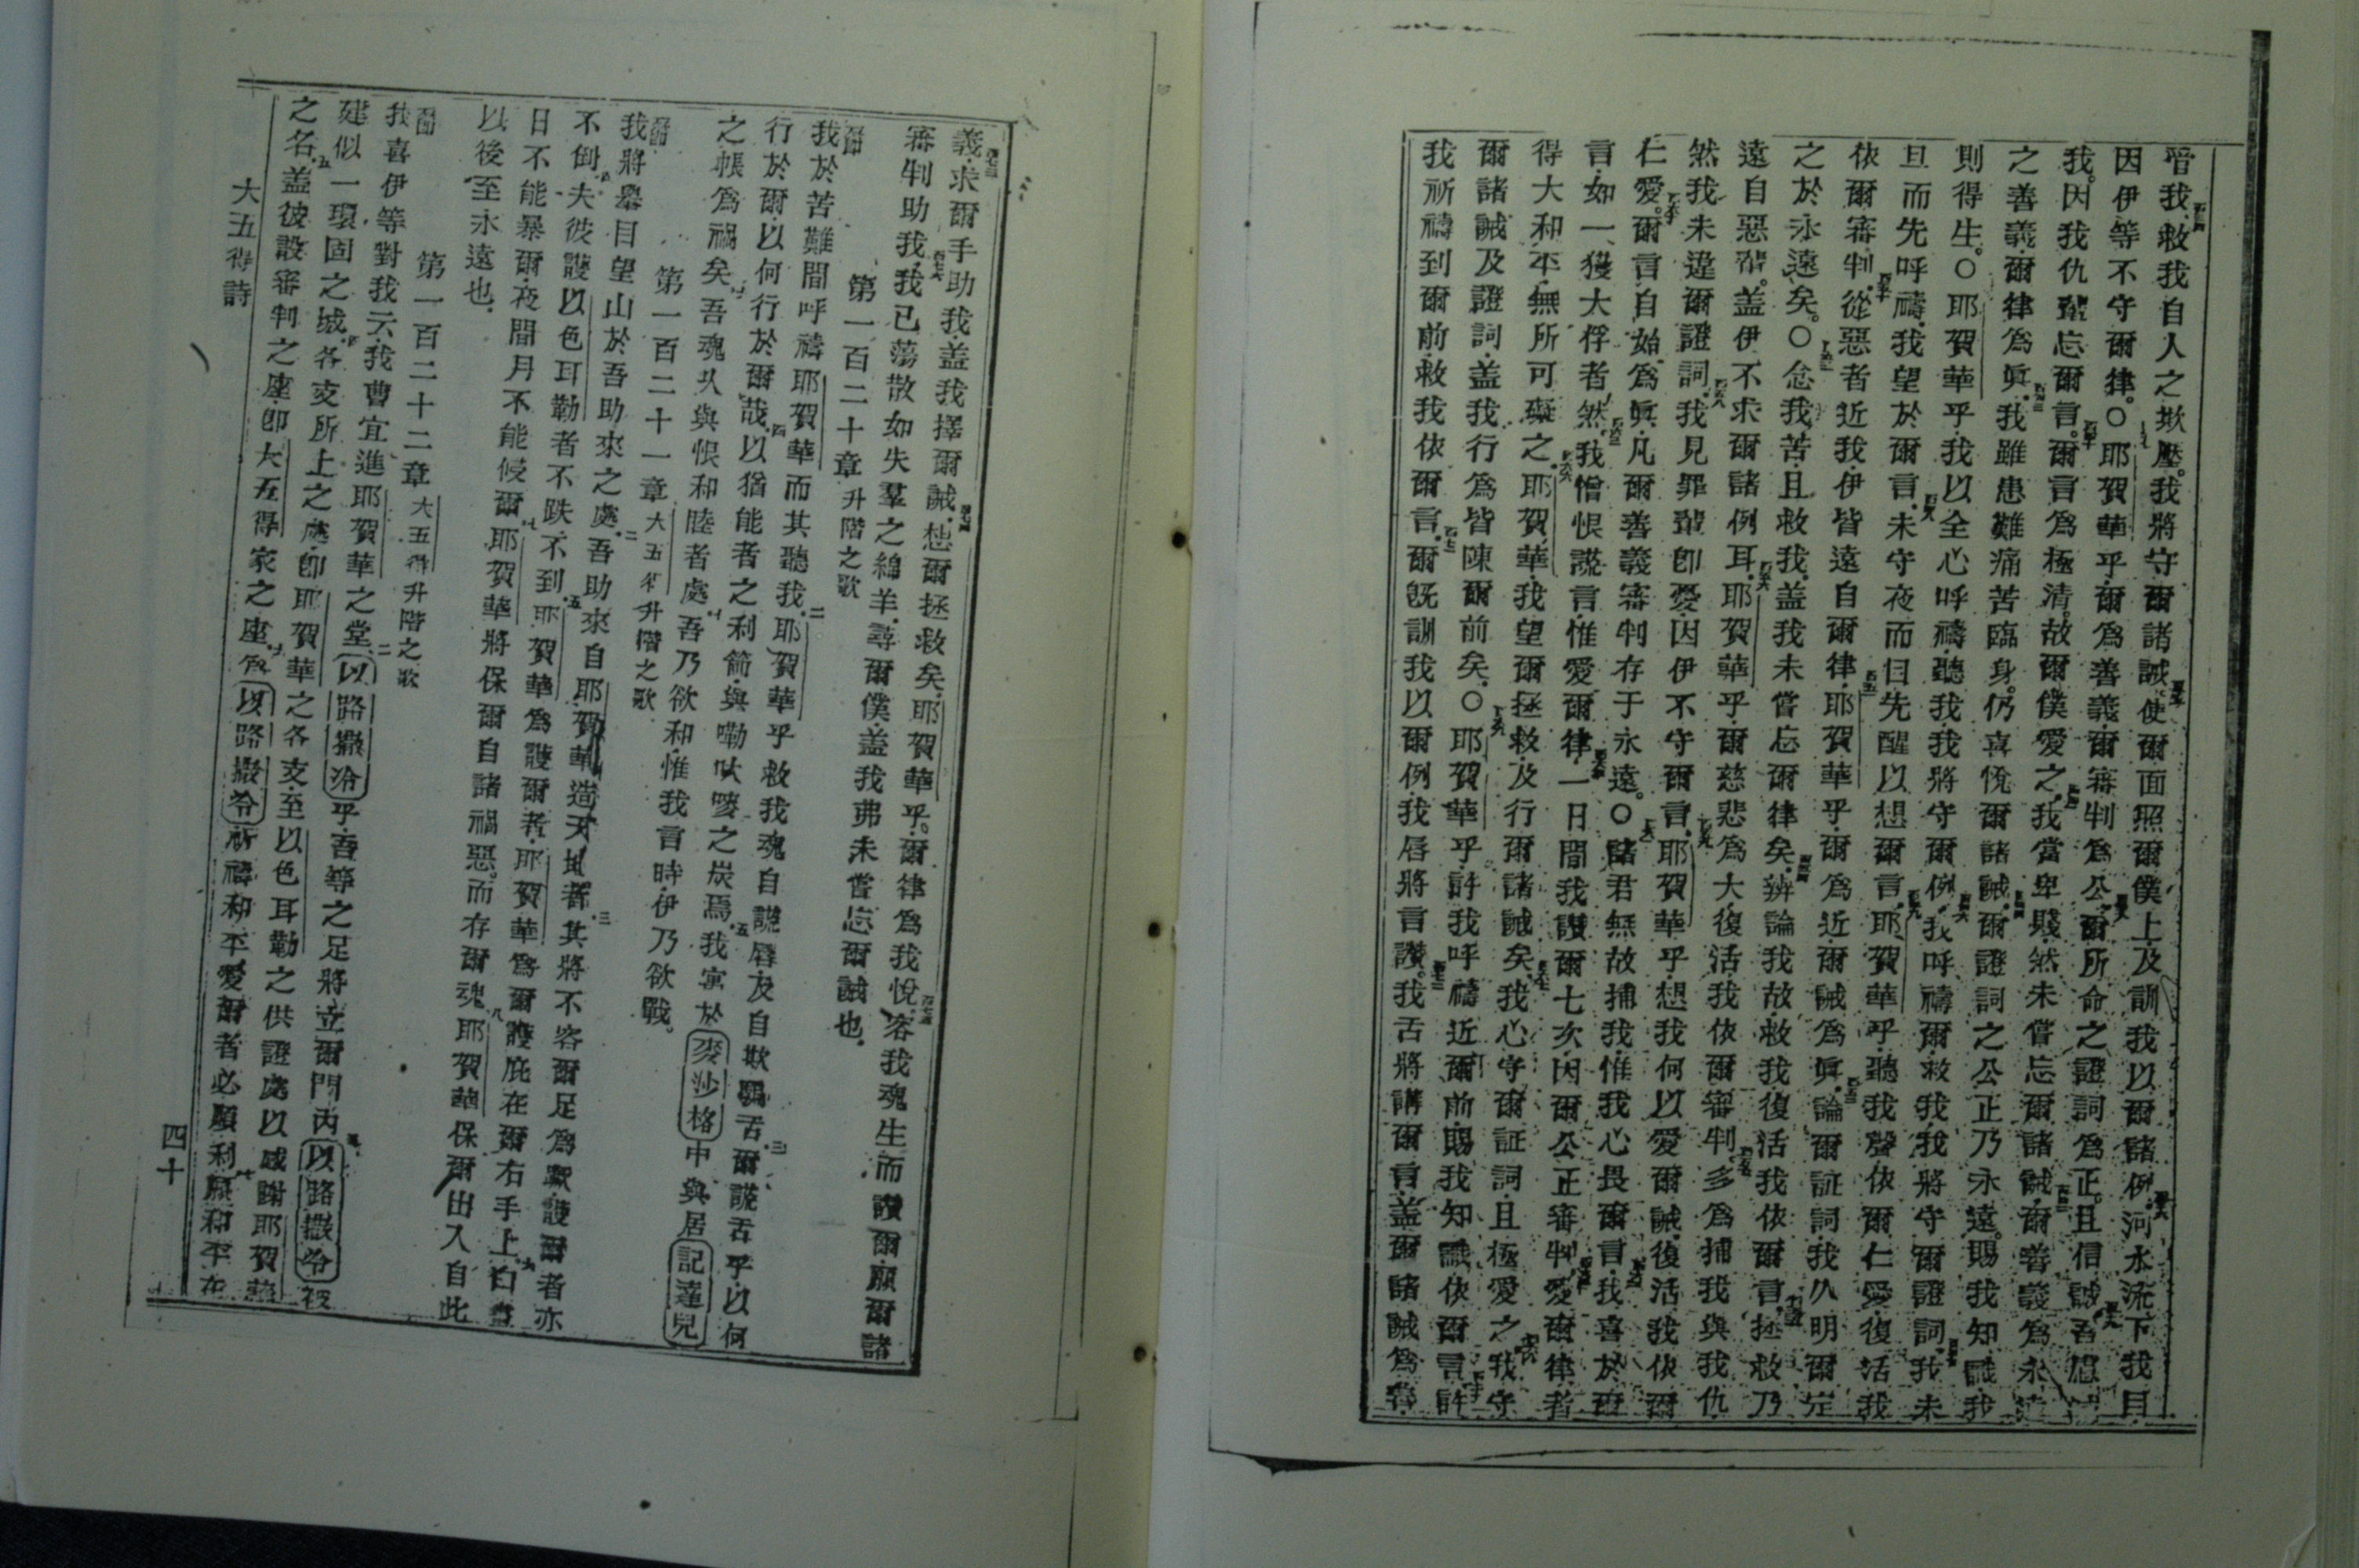 我救我自人之欺壓我將守爾諸誡使爾面照爾僕上及訓我以爾諸例河水流下我目
因伊等不守爾律○耶賀華乎爾為善義爾審判為公爾所命之證詞為正且信誠吾
我因我仇輩忘爾言爾言為極清故爾僕愛之我當卑賤然未嘗忘爾諸誡爾善義為永
之善義爾律為眞我雖患難痛苦臨身仍喜悅爾諸誡爾證詞之公正乃永遠賜我知識我
則得生○耶賀華乎我以全心呼禱聽我我將守爾例我呼禱爾救我我將守爾證詞我未
旦而先呼禱我望於爾言未守夜而目先醒以想爾言耶賀華乎聽我聲依爾仁愛復活我
依爾審判從惡者近我伊皆遠自爾律耶賀華乎爾為近爾誡為眞論爾証詞我久明爾定
之於永遠矣○念我苦且救我蓋我未嘗忘爾律矣辨論我故救我復活我依爾言拯救乃
遠自惡輩蓋伊不求爾諸例耳耶賀華乎爾慈悲為大復活我依爾審判多為捕我與我仇
然我未違爾證詞我見罪輩卽憂因伊不守爾言耶賀華乎想我何以愛爾誡復活我依爾
仁愛爾言自始為眞凡爾善義審判存于永遠○諸君無故捕我惟我心畏爾言我喜於爾
言如一獲大俘者然我憎恨謊言惟愛爾律一日間我讚爾七次因爾公正審判愛爾律者
得大和平無所可礙之耶賀華我望爾拯救及行爾諸誡矣我心守爾証詞且極愛之我守
爾諸誡及證詞蓋我行為皆陳爾前矣○耶賀華乎許我呼禱近爾前賜我知識依爾言許
我祈禱到爾前救我依爾言爾旣訓我以爾例我唇將言讚我舌將講爾言蓋爾諸誡為善
義求爾手助我蓋我擇爾誡想爾拯救矣耶賀華乎爾律為我悅容我魂生而讚爾願爾諸
審判助我我已蕩散如失羣之綿羊尋爾僕蓋我弗未嘗忘爾誡也
第一百二十章升階之歌
我於苦難間呼禱耶賀華而其聽我耶賀華乎救我魂自謊唇及自欺騙舌爾謊舌乎以何
行於爾以何行於爾哉以猶能者之利箭與嘞吠嘜之炭焉我寓於麥沙格中與居記達兒
之帳為禍矣吾魂久與恨和睦者處吾乃欲和惟我言時伊乃欲戰
第一百二十一章大五得升階之歌
我將舉目望山於吾助來之處吾助來自耶賀華造天地者其將不容爾足為蹶護爾者亦
不倒夫彼護以色耳勒者不跌不到耶賀華為護爾者耶賀華為爾護庇在爾右手上白晝
日不能暴爾夜間月不能侵爾耶賀華將保爾自諸禍惡而存爾魂耶賀華保爾出入自此
以後至永遠也
第一百二十二章大五得升階之歌
我喜伊等對我云我曹宜進耶賀華之堂以路撒冷乎吾等之足將立爾門內以路撒冷被
建似一環固之城各支所上之處卽耶賀華之各支至以色耳勒之供證處以感謝耶賀華
之名蓋彼設審判之座卽大五得家之座為以路撒冷祈禱和平愛爾者必順利願和平在
大五得詩 四十